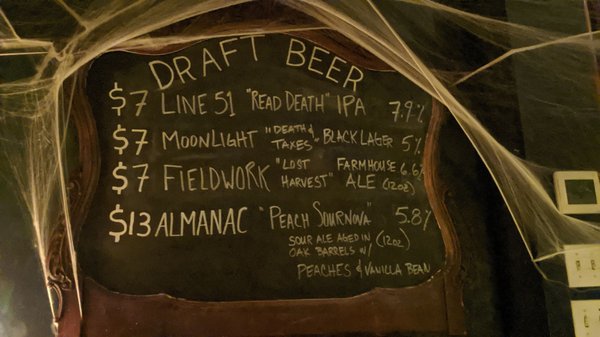 DRAFT BEER
$7 LINE 51 "READ DEATH" IPA 7.9%
$7 MOONLIGHT "DEATH & TAXES" BLACK LAGER 5%
$7 FIELDWORK "LOST HARVEST" FARMHOUSE ALE (12oz) 6.6%
$13 ALMANAC "PEACH SOURNOVA" 5.8%
SOUR ALE AGED IN (12oz)
OAK BARRELS W/
PEACHES & VANILLA BEAN